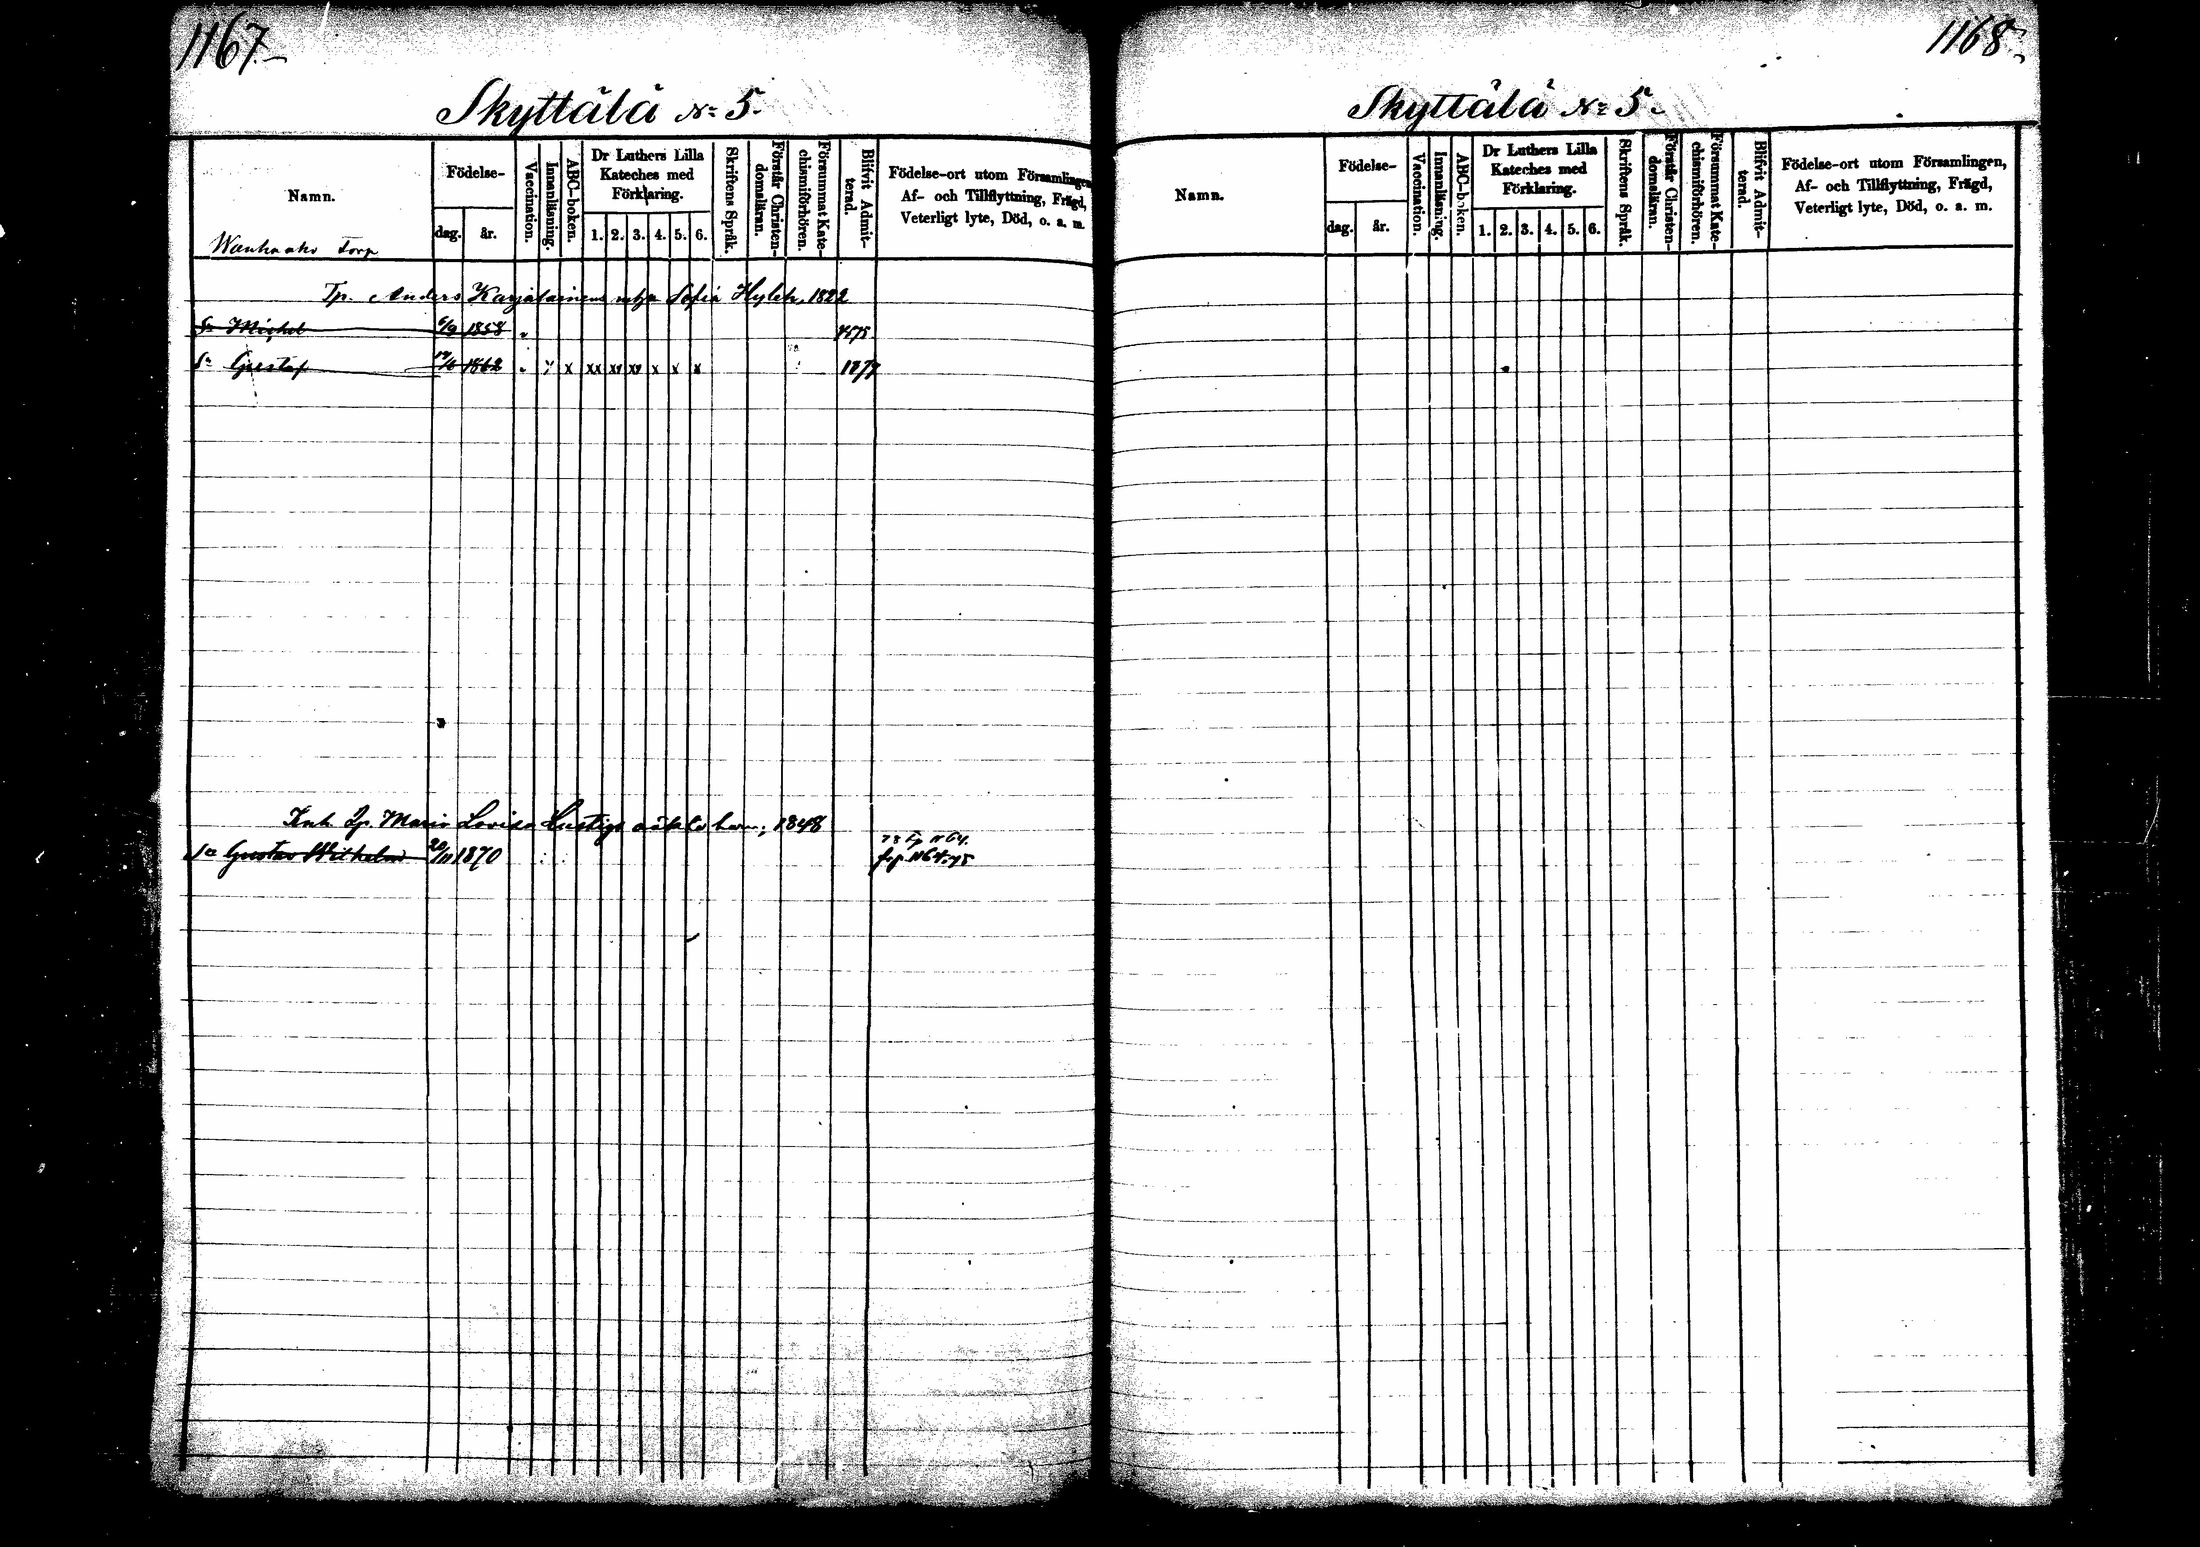 1167
Skyttälä No 5.
Namn.
Födelse-
dag.
år.
Vaccination.
Innanläsning.
ABC-boken.
Dr Luthers Lilla
Kateches med
Förklaring.
1. 2. 3. 4. 5. 6.
Skriftens Språk.
Förstår Christen-
domsläran.
Försummat Kate-
chismiförhören.
Blifvit Admit-
terad.
Födelse-ort utom Församlingen,
Af- och Tillflyttning, Frägd,
Veterligt lyte, Död, o. a. m.
Torp
Tp. Anders Karjalainens Sofia 1822
Sn Michel 6/9 1858 1875.
Sn Gustaf 1862 x xx xx xx x x x 1877
Maria Lovisa Lustigs oäkta barn; 1848
Sn Gustav Wilhelm 20/11 1870
fr p. 1164. 75
1168
Skyttälä No 5.
Namn.
Födelse-
dag.
år.
Vaccination.
Innanläsning.
ABC-boken.
Dr Luthers Lilla
Kateches med
Förklaring.
1. 2. 3. 4. 5. 6.
Skriftens Språk.
Förstår Christen-
domsläran.
Försummat Kate-
chismiförhören.
Blifvit Admit-
terad.
Födelse-ort utom Församlingen,
Af- och Tillflyttning, Frägd,
Veterligt lyte, Död, o. a. m.